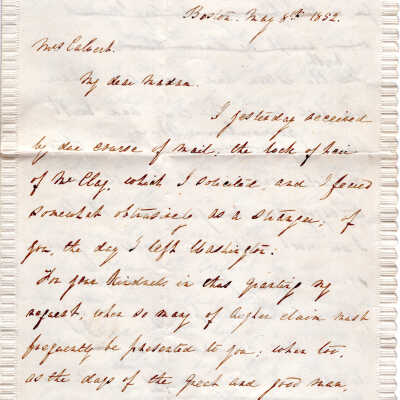 Boston. May 8th 1852.
Mrs Calvert.
My dear Madam.
I yesterday received
by due course of mail, the lock of hair
of Mr Clay, which I solicited, and I feared
somewhat obtrusively as a stranger, of
you, the day I left Washington.
For your kindness in thus granting my
request, when so many of higher claim must
frequently be presented to you; when too,
as the days of the great and good man,